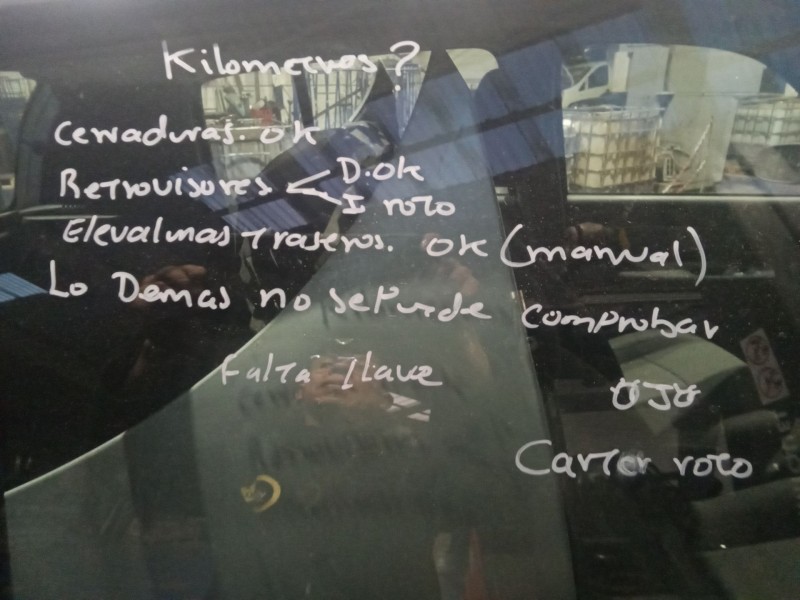 Kilometros?
Cerraduras. ok
Retrovisores < D.ok
I roto
Elevalunas Traseros. ok (manual)
Lo Demas no sePuede comprobar
Falta llave
OJO
Carter roto